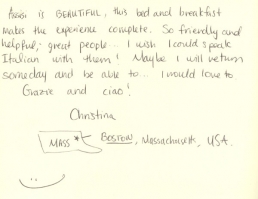 Assisi is BEAUTIFUL, this bed and breakfast
makes the experience complete. So friendly and
helpful; great people... I wish I could speak
Italian with them! Maybe I will return
someday and be able to... I would love to
Grazie and ciao!
Christina
MASS * BOSTON, Massachusetts, USA.